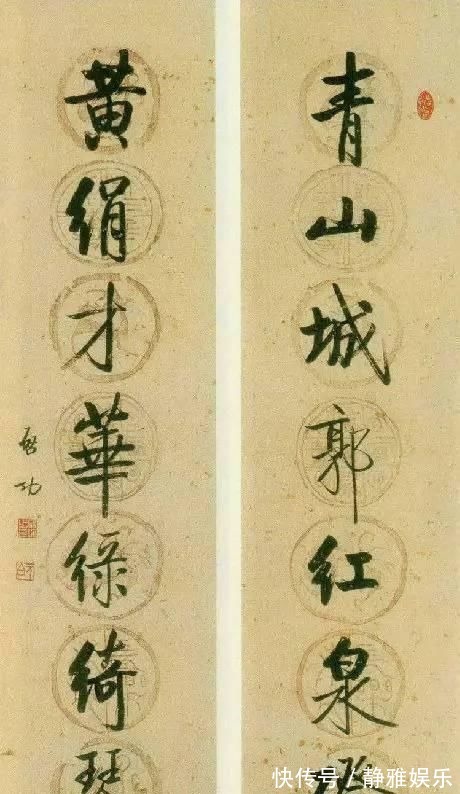 青山城郭红泉
黄绢才華绿绮
启功
快传号/静雅娱乐